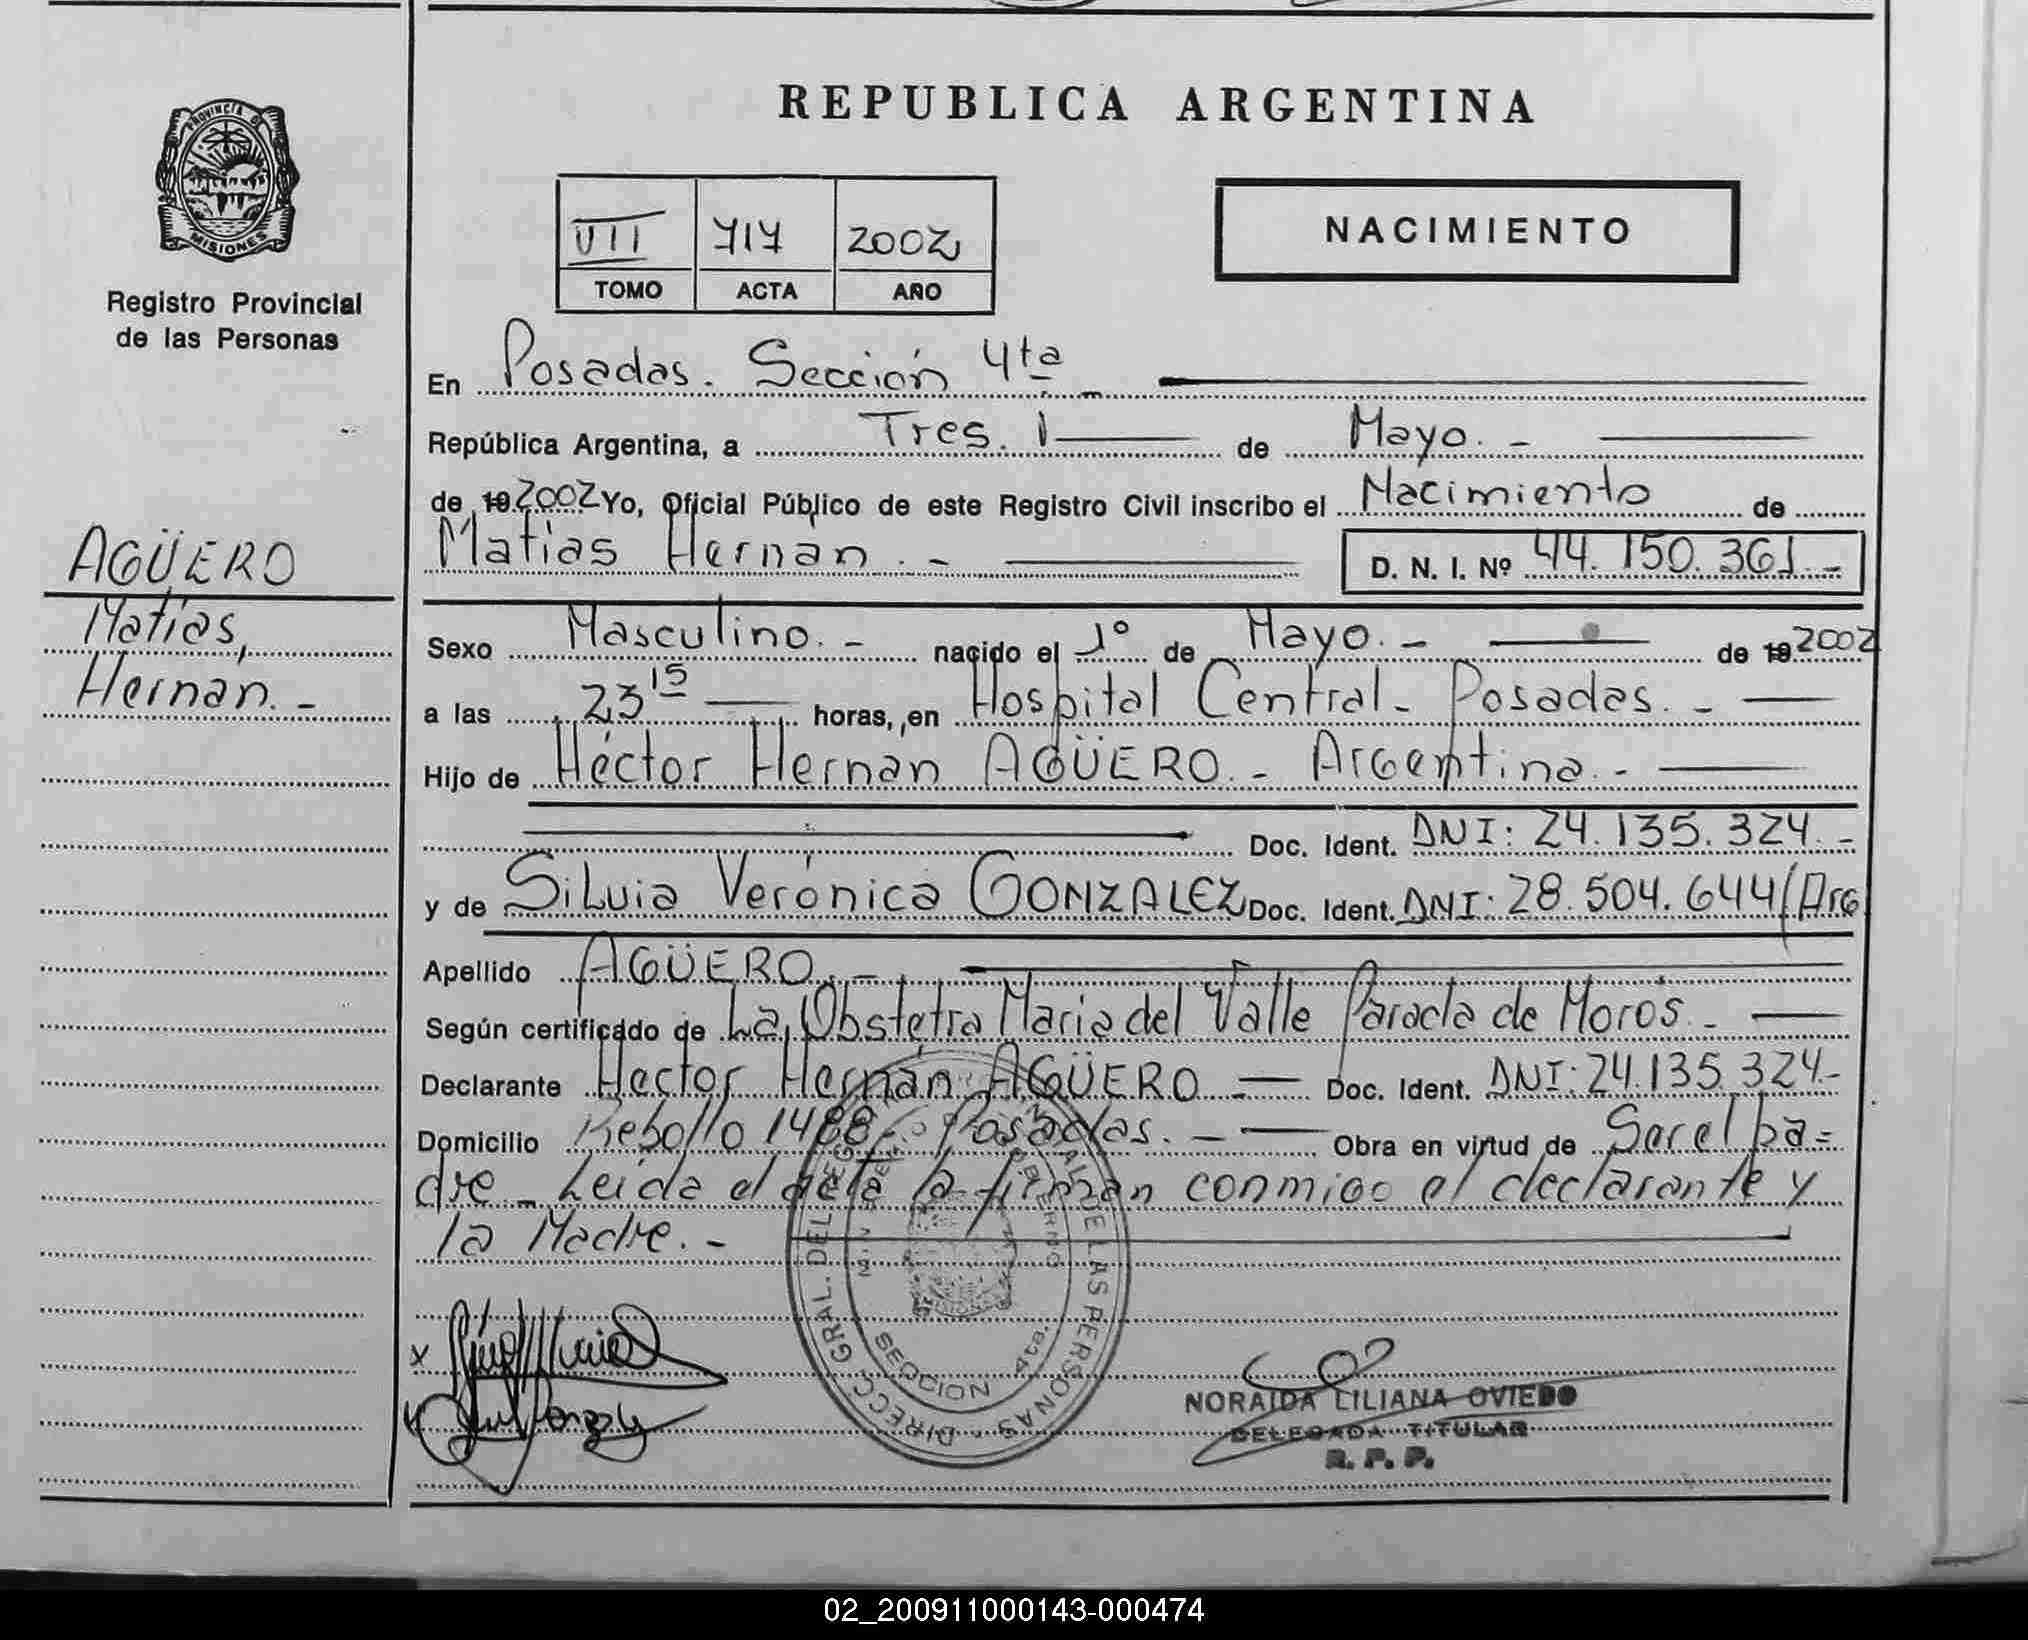 PROVINCIA DE
MISIONES
Registro Provincial
de las Personas
AGÜERO
Matías,
Hernán. -
REPUBLICA ARGENTINA
VII 717 2002
TOMO ACTA AÑO
NACIMIENTO
En Posadas. Sección 4ta -
República Argentina, a Tres. de Mayo. -
de 19 2002 Yo, Oficial Público de este Registro Civil inscribo el Nacimiento de
Matías Hernan. - D. N. I. Nº 44.150.361. -
Sexo Masculino. - nacido el 1º de Mayo. - de 19 2002
a las 23 15 horas, en Hospital Central - Posadas. -
Hijo de Héctor Hernan AGÜERO. - Argentina. -
Doc. Ident. DNI: 24.135.324. -
y de Silvia Verónica GONZALEZ Doc. Ident. DNI: 28.504.644 (Arg
Apellido AGÜERO. -
Según certificado de La Obstetra Maria del Valle Parada de Moros. -
Declarante Hector Hernán AGÜERO - Doc. Ident. DNI: 24.135.324. -
Domicilio Rebollo 1488 - Posadas. - Obra en virtud de Ser el pa=
dre - Leida el acta la firman conmigo el declarante y
la Madre. -
DIRECC. GRAL. DEL REGISTRO DE LAS PERSONAS
SECCION 4ta.
NORAIDA LILIANA OVIEDO
DELEGADA TITULAR
R. P. P.
02_200911000143-000474